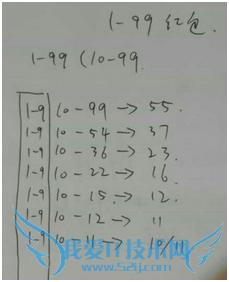 1-99 红包.
1-99 (10-99
1-9 10-99→ 55.
1-9 10-54→ 37
1-9 10-36→ 23.
1-9 10-22→ 16
1-9 10-15.→ 12.
1-9 10-12→ 11
1-9 10-11→ 10/11
我爱IT技术网
www.52ij.com